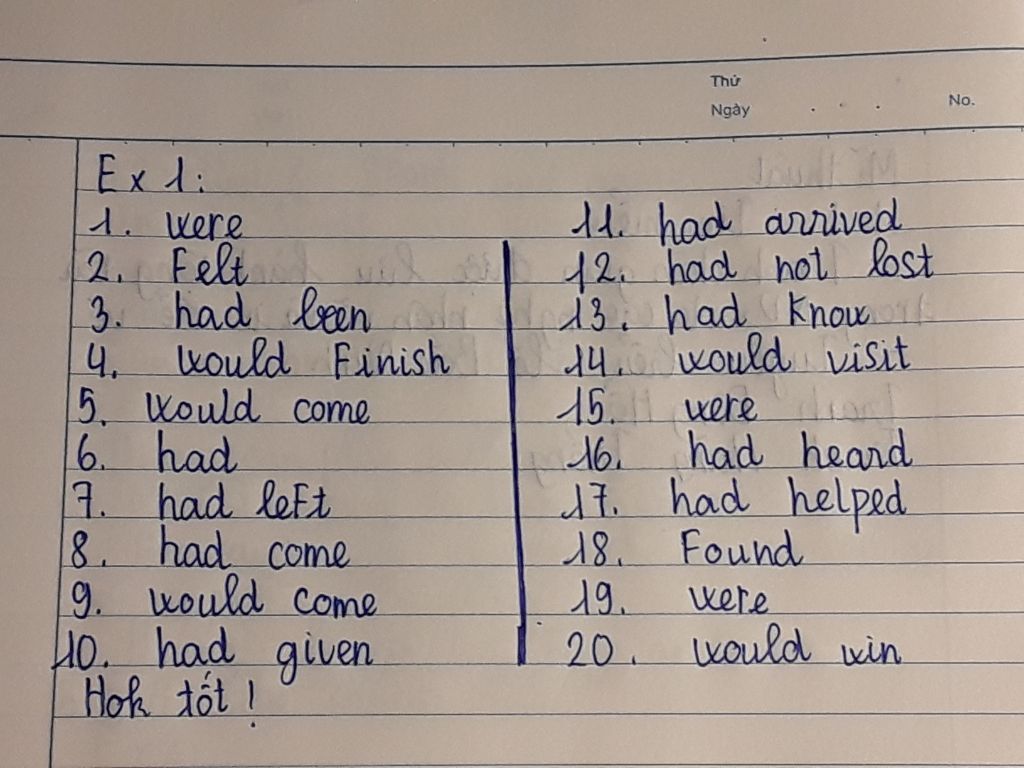 Thứ
Ngày . . .
No.
Ex 1:
1. were
2. Felt
3. had been
4. would Finish
5. would come
6. had
7. had left
8. had come
9. would come
10. had given
Hok tốt !
11. had arrived
12. had not lost
13. had know
14. would visit
15. were
16. had heard
17. had helped
18. Found
19. were
20. would win